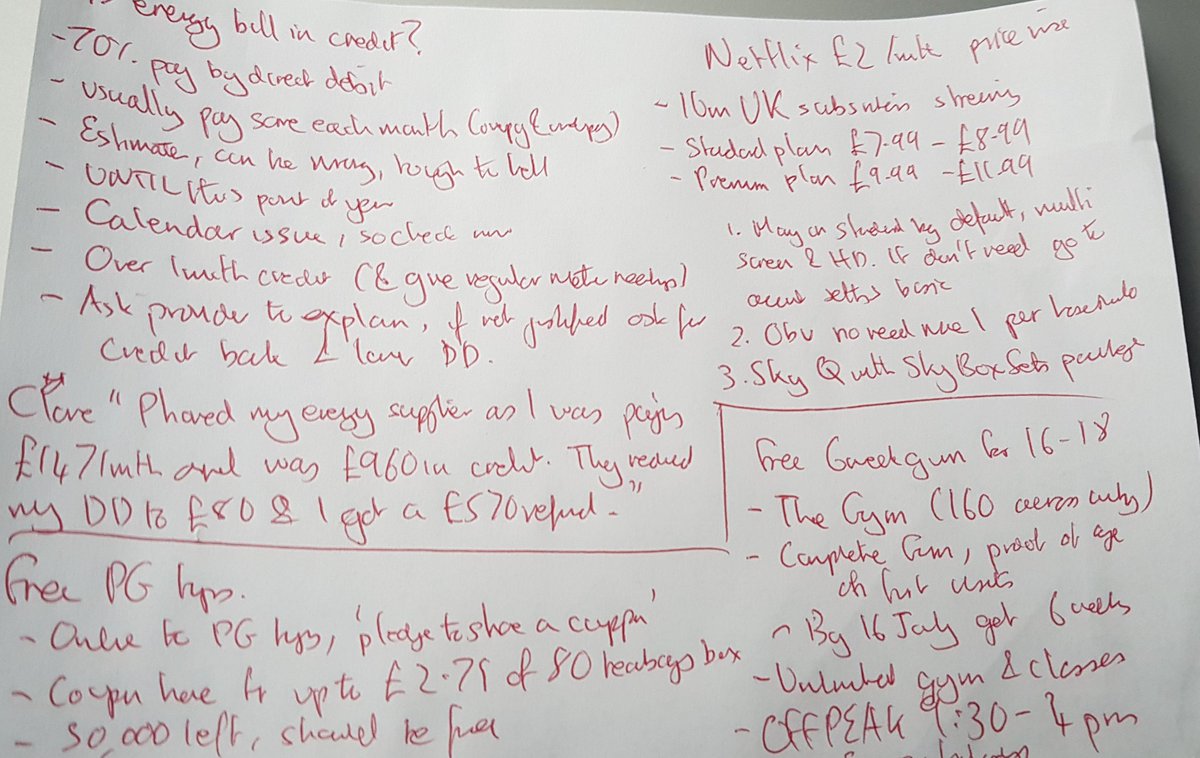 energy bill in credit?
- 70% pay by direct debit
- usually pay same each month
- Estimates, can be wrong, tough to tell
- UNTIL this point of year
- Calendar issue, so check now
- Over 1 month credit (& give regular meter readings)
- Ask provider to explain, if not justified ask for
credit back & lower DD.
Clare "Phoned my energy supplier as I was paying
£147/mth and was £960 in credit. They reduced
my DD to £80 & I got a £570 refund."
Free PG tips.
- Online to PG tips, 'pledge to share a cuppa'
- Coupon here for up to £2.79 of 80 teabags box
- 50,000 left, should be fine
Netflix £2/mth price rise
- 10m UK subscribers streaming
- Standard plan £7.99 - £8.99
- Premium plan £9.99 - £11.99
1. May on standard by default, multi
screen & HD. If don't need go to
account settings basic
2. Obv no need more 1 per household
3. Sky Q with Sky Box Sets package
Free 6 week gym for 16-18
- The Gym (160 across country)
- Complete form, proof of age
on first visits
- By 16 July get 6 weeks
- Unlimited gym & classes
- OFFPEAK 9:30 - 4pm